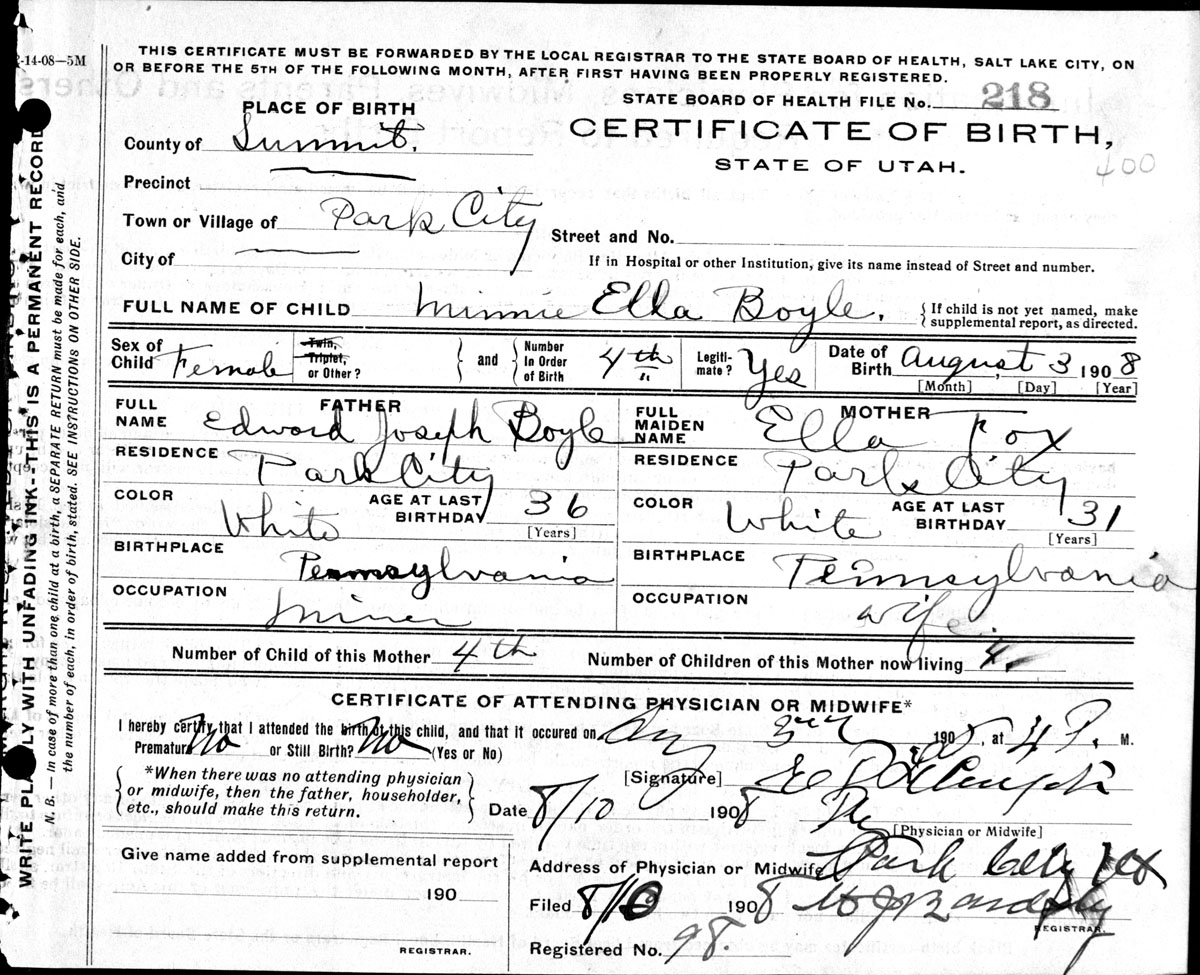 2-14-08—5M
THIS CERTIFICATE MUST BE FORWARDED BY THE LOCAL REGISTRAR TO THE STATE BOARD OF HEALTH, SALT LAKE CITY, ON
OR BEFORE THE 5TH OF THE FOLLOWING MONTH, AFTER FIRST HAVING BEEN PROPERLY REGISTERED.
STATE BOARD OF HEALTH FILE No. 218
PLACE OF BIRTH
CERTIFICATE OF BIRTH,
STATE OF UTAH.
400
County of Summit.
Precinct
Town or Village of Park City
Street and No.
City of
If in Hospital or other Institution, give its name instead of Street and number.
FULL NAME OF CHILD Minnie Ella Boyle.
{If child is not yet named, make
supplemental report, as directed.}
Sex of Child Female
Twin, Triplet, or Other?
and
Number In Order of Birth 4th
Legiti-mate? Yes
Date of Birth August 3 1908
[Month] [Day] [Year]
FATHER
FULL NAME Edward Joseph Boyle
RESIDENCE Park City
COLOR White
AGE AT LAST BIRTHDAY 36
[Years]
BIRTHPLACE Pennsylvania
OCCUPATION Miner
MOTHER
FULL MAIDEN NAME Ella Fox
RESIDENCE Park City
COLOR White
AGE AT LAST BIRTHDAY 31
[Years]
BIRTHPLACE Pennsylvania
OCCUPATION Wife
Number of Child of this Mother 4th
Number of Children of this Mother now living 4.
CERTIFICATE OF ATTENDING PHYSICIAN OR MIDWIFE*
I hereby certify that I attended the birth of this child, and that it occured on Aug 3rd 1908, at 4 P. M.
Premature No or Still Birth? No (Yes or No)
{*When there was no attending physician
or midwife, then the father, householder,
etc., should make this return.}
[Signature]
Date 8/10 1908
[Physician or Midwife]
Give name added from supplemental report
190
REGISTRAR.
Address of Physician or Midwife Park City
Filed 8/10 1908
REGISTRAR.
Registered No. 98
WRITE PLAINLY WITH UNFADING INK—THIS IS A PERMANENT RECORD
N. B. — In case of more than one child at a birth, a SEPARATE RETURN must be made for each, and
the number of each, in order of birth, stated. SEE INSTRUCTIONS ON OTHER SIDE.